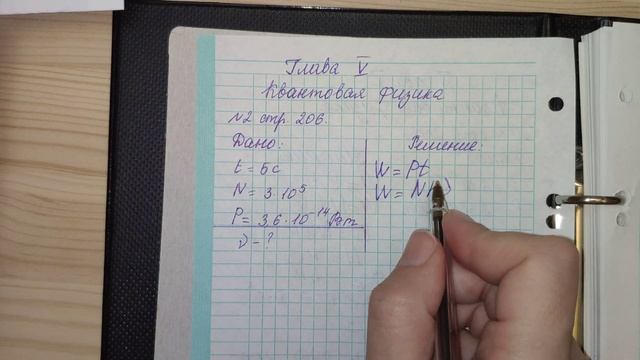 Глава V
Квантовая физика
№2 стр. 206.
Дано:
t = 5с
N = 3·10⁵
P = 3,6·10⁻¹⁴ Вт
ν - ?
Решение:
W = Pt
W = Nhν